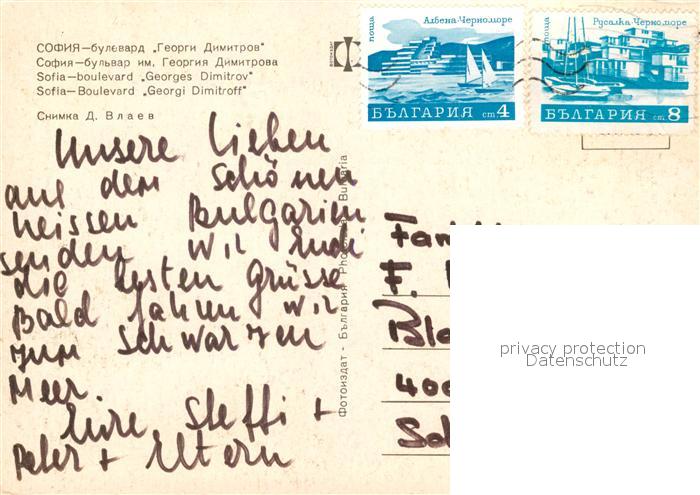 СОФИЯ—булевард „Георги Димитров"
София—бульвар им. Георгия Димитрова
Sofia—boulevard „Georges Dimitrov"
Sofia—Boulevard „Georgi Dimitroff"
Снимка Д. Влаев
поща
Албена-Черноморе
БЪЛГАРИЯ ст 4
поща
Русалка-Черноморе
БЪЛГАРИЯ ст. 8
Unsere Lieben
aus dem schönen
heissen Bulgarien
senden wir Euch
die besten Grüsse
Bald fahren wir
zum Schwarzen
Meer.
Eure Steffi +
Peter + Eltern
Фотоиздат - България Bulgaria
Fam
F.
Ble
400
privacy protection
Datenschutz